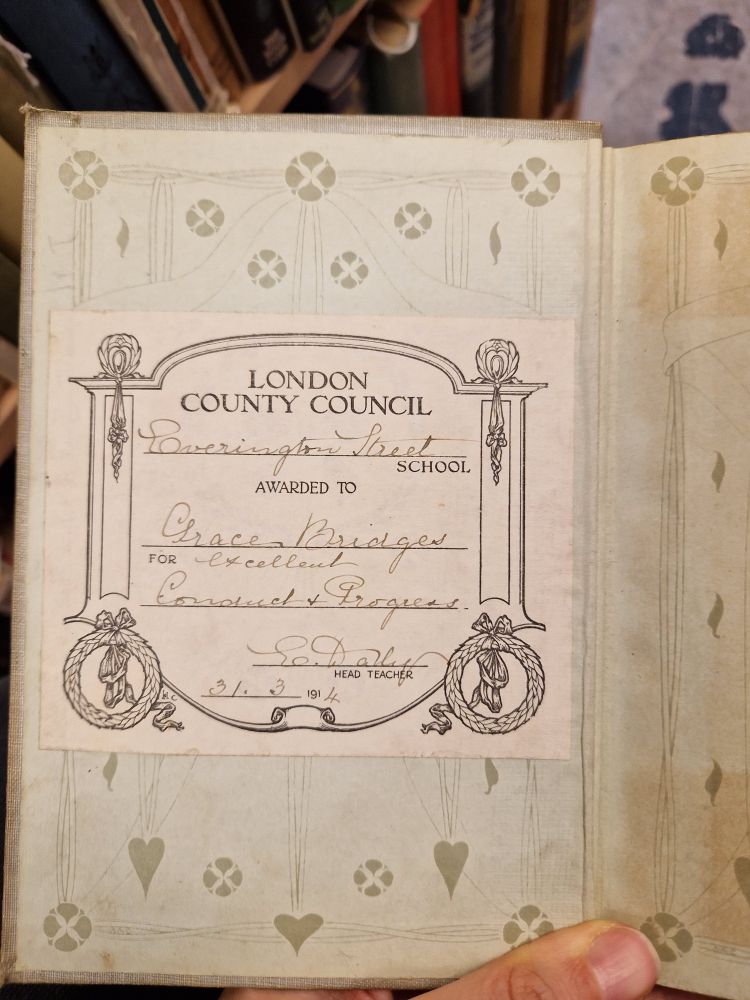 LONDON
COUNTY COUNCIL
Everington Street
SCHOOL
AWARDED TO
Grace Bridges
FOR excellent
Conduct & Progress.
E. Daly
HEAD TEACHER
31. 3 1914